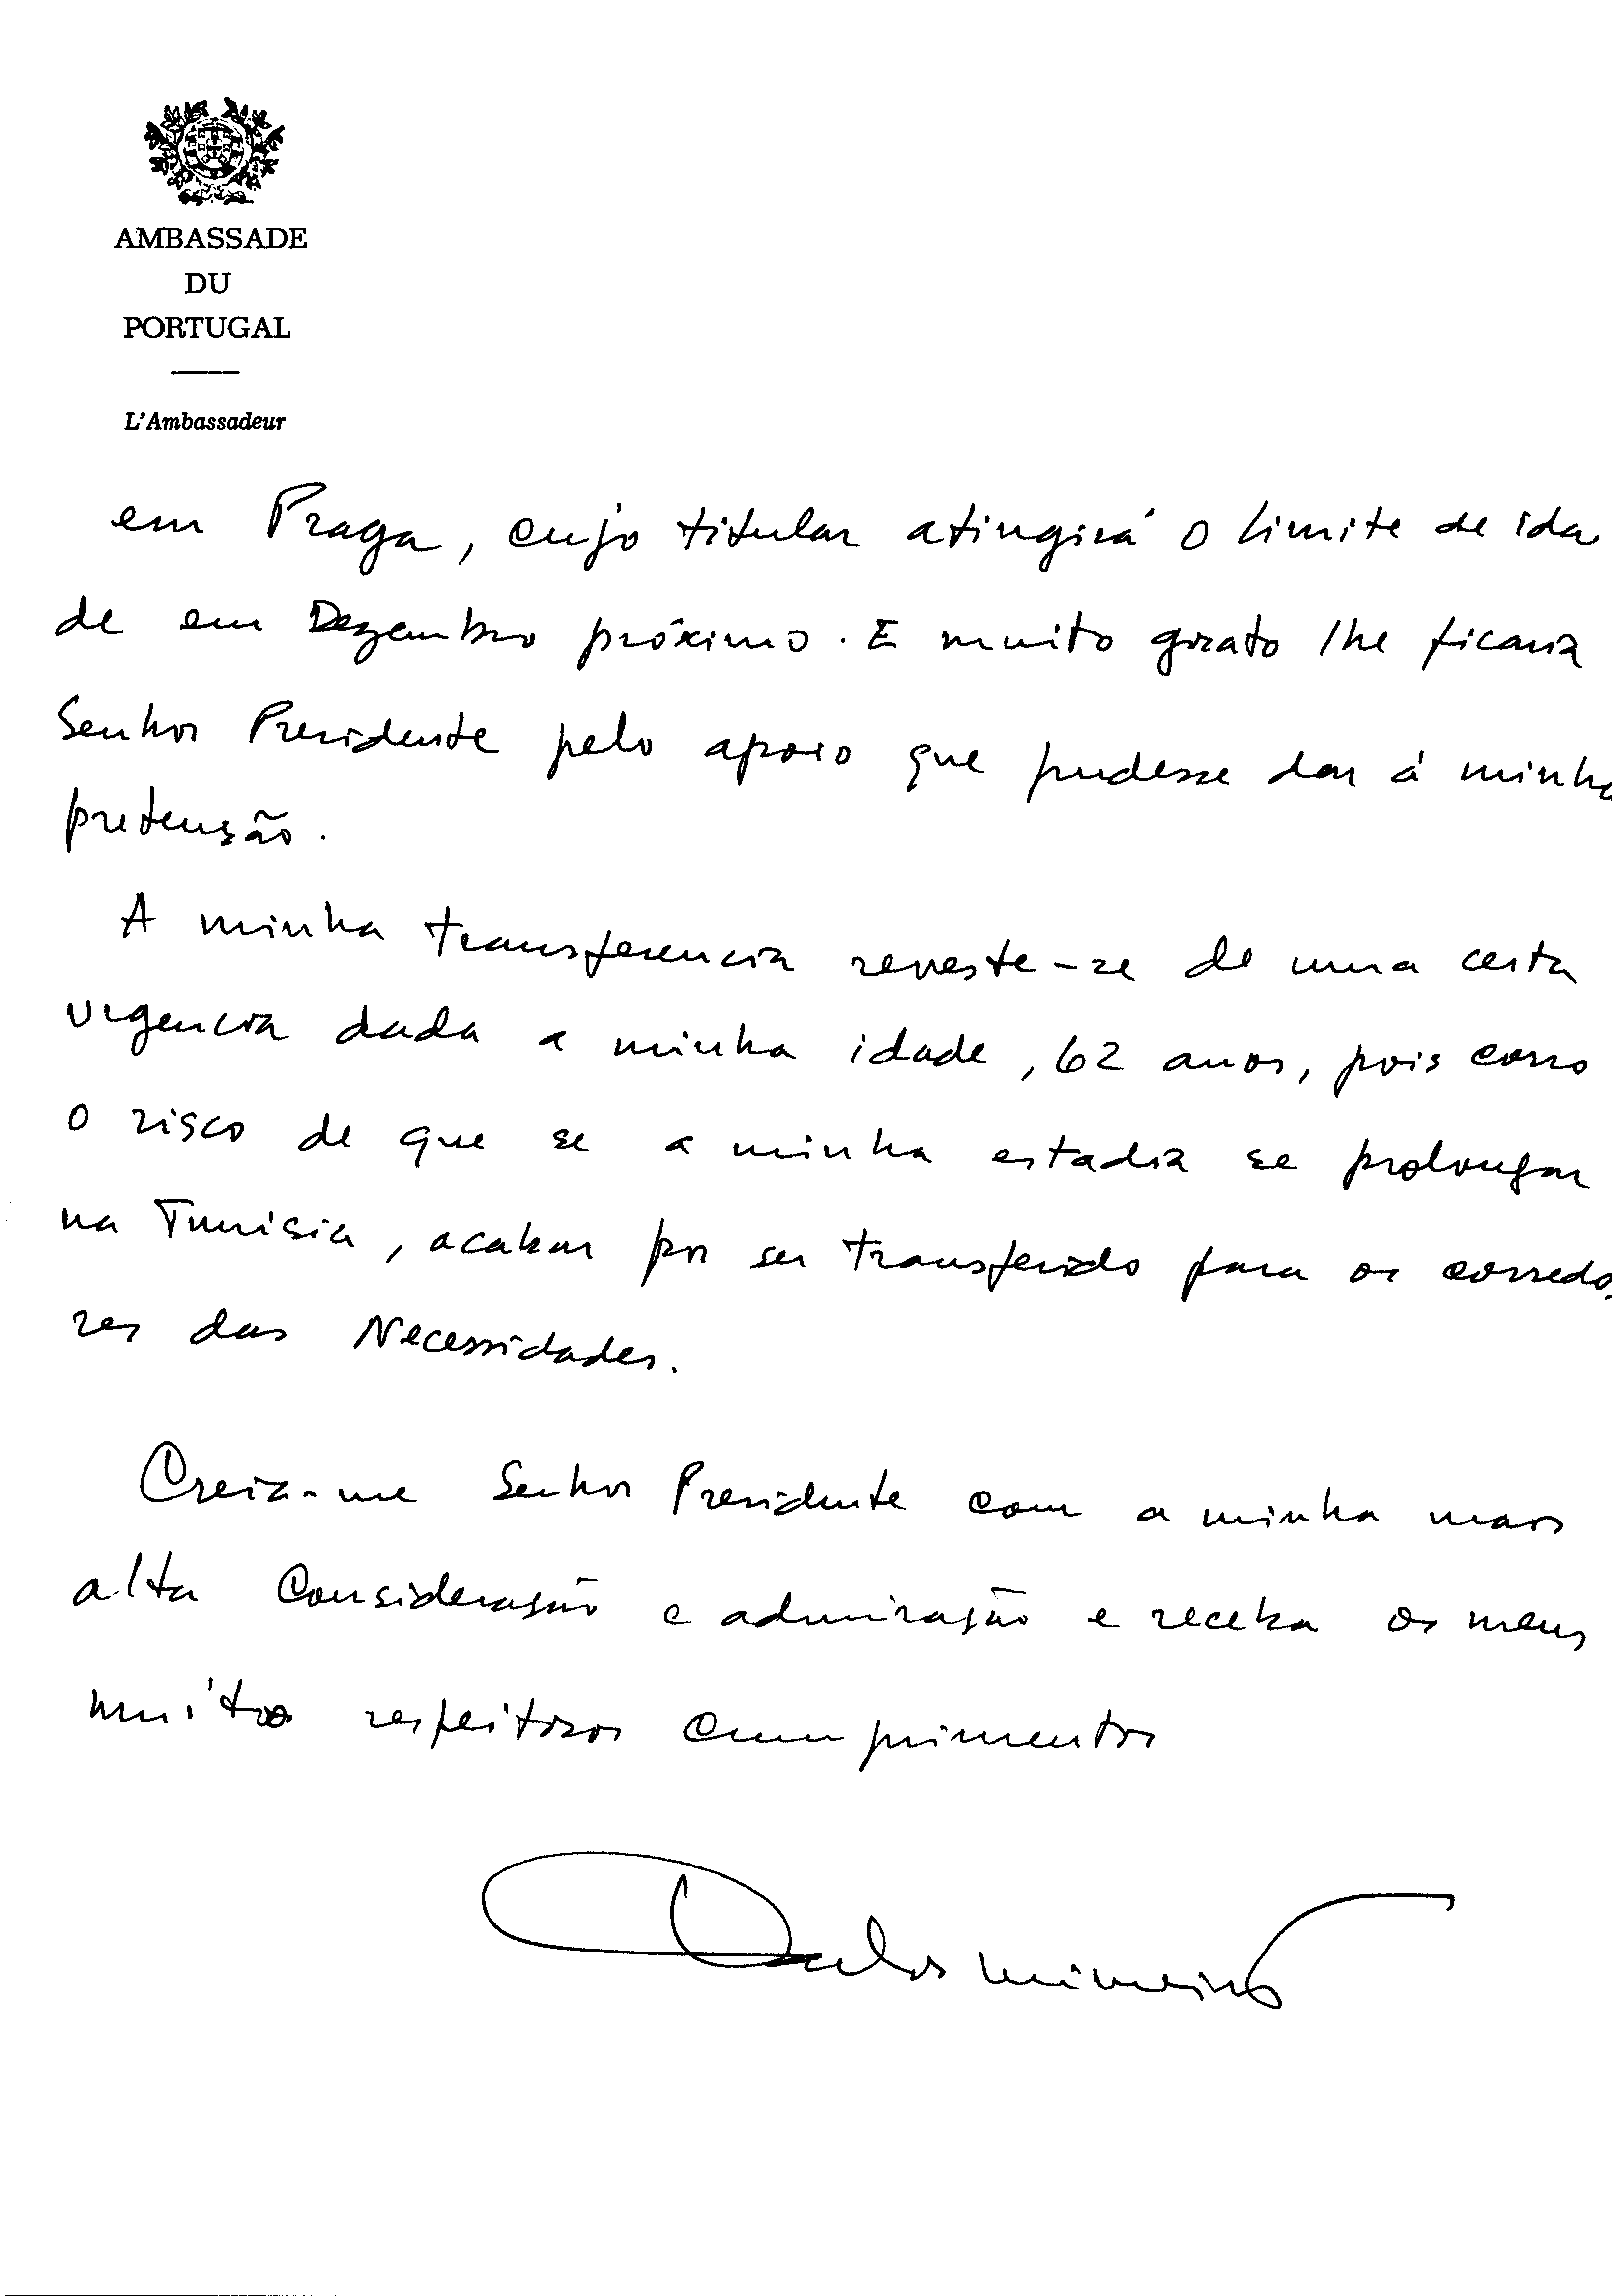 AMBASSADE
DU
PORTUGAL
L'Ambassadeur
em Praga, cujo titular atingirá o limite de ida
de em Dezembro próximo. E muito grato lhe ficaria
Senhor Presidente pelo apoio que pudesse dar á minha
pretensão.
A minha transferencia reveste-se de uma certa
urgencia dada a minha idade, 62 anos, pois corro
o risco de que se a minha estadia se prolongar
na Tunísia, acabar por ser transferido para os corredo
res das Necessidades.
Creia-me Senhor Presidente com a minha mais
alta Consideração e admiração e receba os meus
muito respeitosos cumprimentos